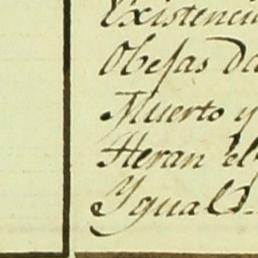 Existencia
Obejas da
Muerto y
Heran el
Ygual